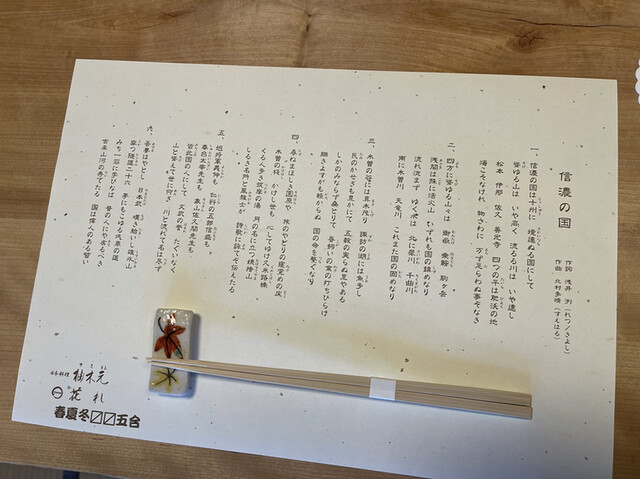 信濃の国
作詞 浅井 洌(れつ/きよし)
作曲 北村季晴(すえはる)
一、信濃の国は十州に 境連ぬる国にして
聳ゆる山は いや高く 流るる川は いや遠し
松本 伊那 佐久 善光寺 四つの平は肥沃の地
海こそなけれ 物さわに 万ず足らわぬ事ぞなき
二、四方に聳ゆる山々は 御嶽 乗鞍 駒ヶ岳
浅間は殊に活火山 いずれも国の鎮めなり
流れ淀まず ゆく水は 北に犀川 千曲川
南に木曽川 天竜川 これまた国の固めなり
三、木曽の谷には真木茂り 諏訪の湖には魚多し
民のかせぎも豊かにて 五穀の実らぬ里やある
しかのみならず桑とりて 蚕飼いの業の打ちひらけ
細きよすがも軽からぬ 国の命を繋ぐなり
四、尋ねまほしき園原や 旅のやどりの寝覚の床
木曽の桟 かけし世も 心してゆけ久米路橋
くる人多き筑摩の湯 月の名に立つ姨捨山
しるき名所と風雅士が 詩歌に詠てぞ伝えたる
五、旭将軍義仲も 仁科の五郎信盛も
春台太宰先生も 象山佐久間先生も
皆此国の人にして 文武の誉 たぐいなく
山と聳えて世に仰ぎ 川と流れて名は尽ず
六、吾妻はやとし 日本武 嘆き給いし碓氷山
穿つ隧道二十六 夢にもこゆる汽車の道
みち一筋に学びなば 昔の人にや劣るべき
古来山河の秀でたる 国は偉人のある習い
日本料理 柚木元
花札
春夏冬〼〼五合